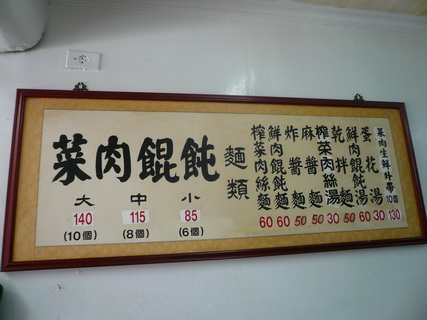 菜肉餛飩
大 中 小
140 115 85
(10個) (8個) (6個)
麵類
榨菜肉絲麵 60
鮮肉餛飩麵 60
炸醬麵 50
麻醬麵 50
榨菜肉絲湯 30
乾拌麵 50
鮮肉餛飩湯 60
蛋花湯 30
菜肉生鮮外帶10個 130